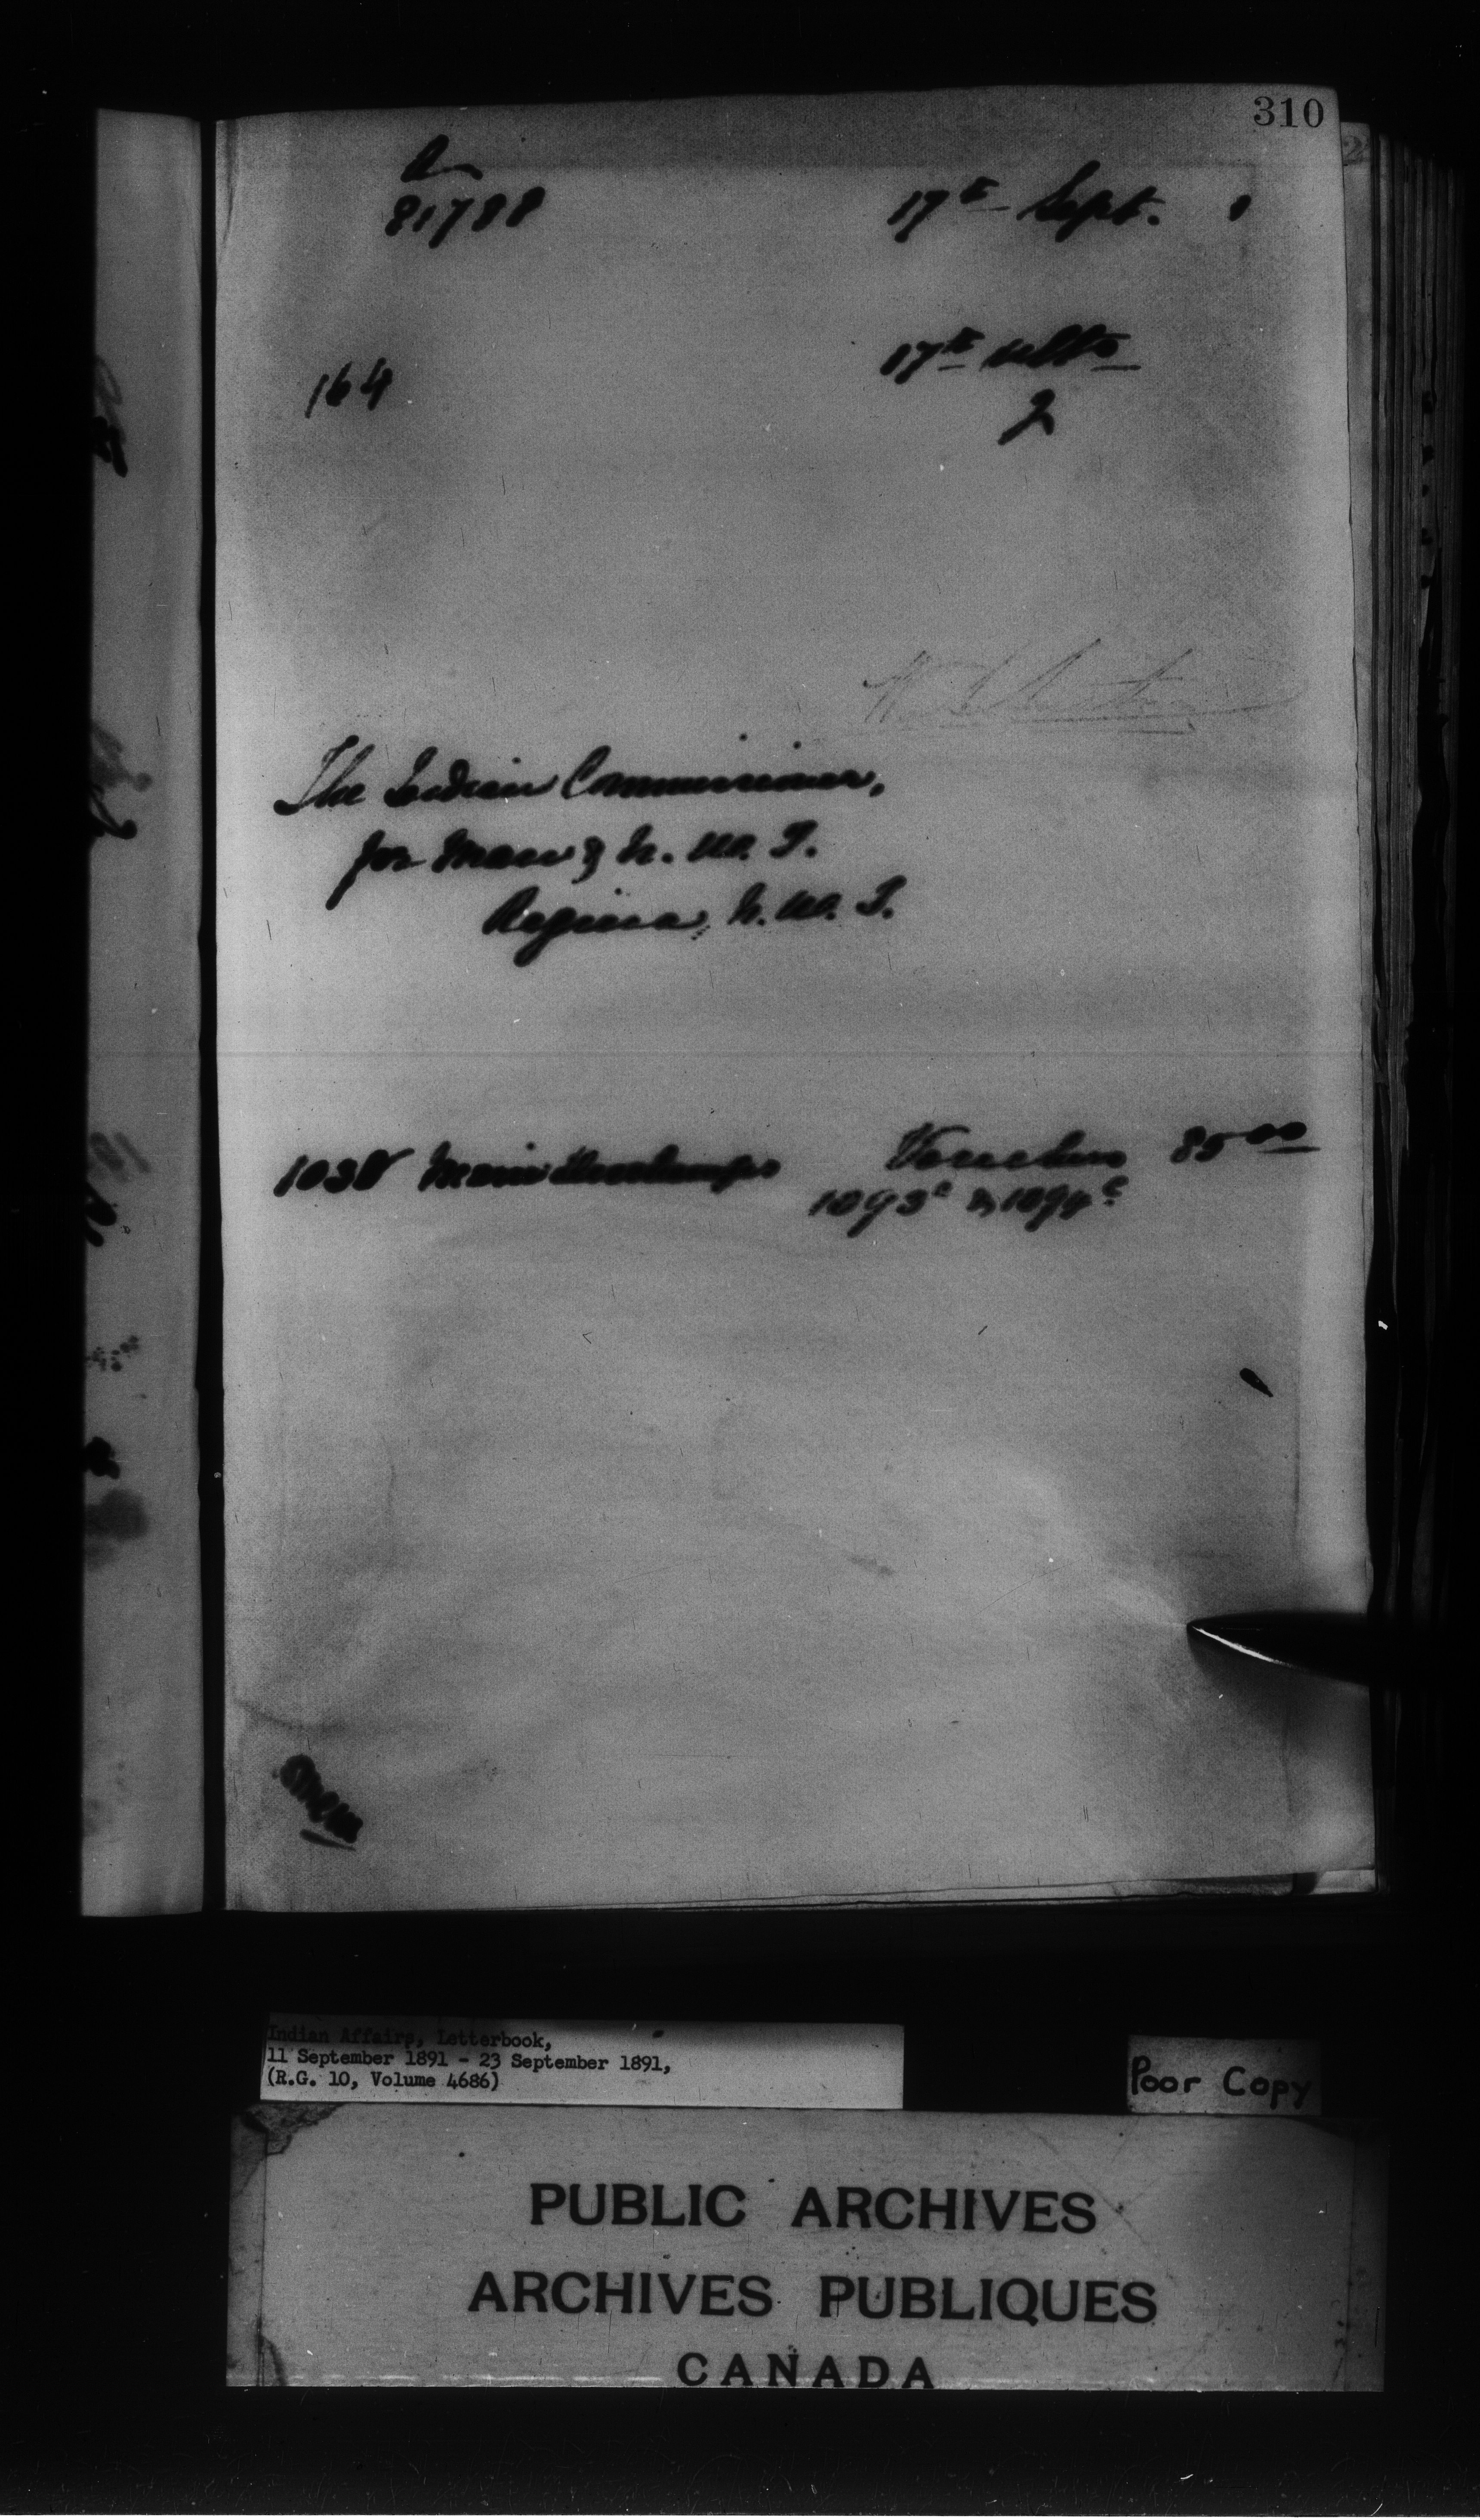 310
81788
17th Sept. 1
164
17th ulto
2
The Indian Commissioner,
for Man & N. W. T.
Regina, N. W. T.
1038 Vouchers 85 00
1093 & 1094
Indian Affairs, Letterbook,
11 September 1891 - 23 September 1891,
(R.G. 10, Volume 4686)
Poor Copy
PUBLIC ARCHIVES
ARCHIVES PUBLIQUES
CANADA